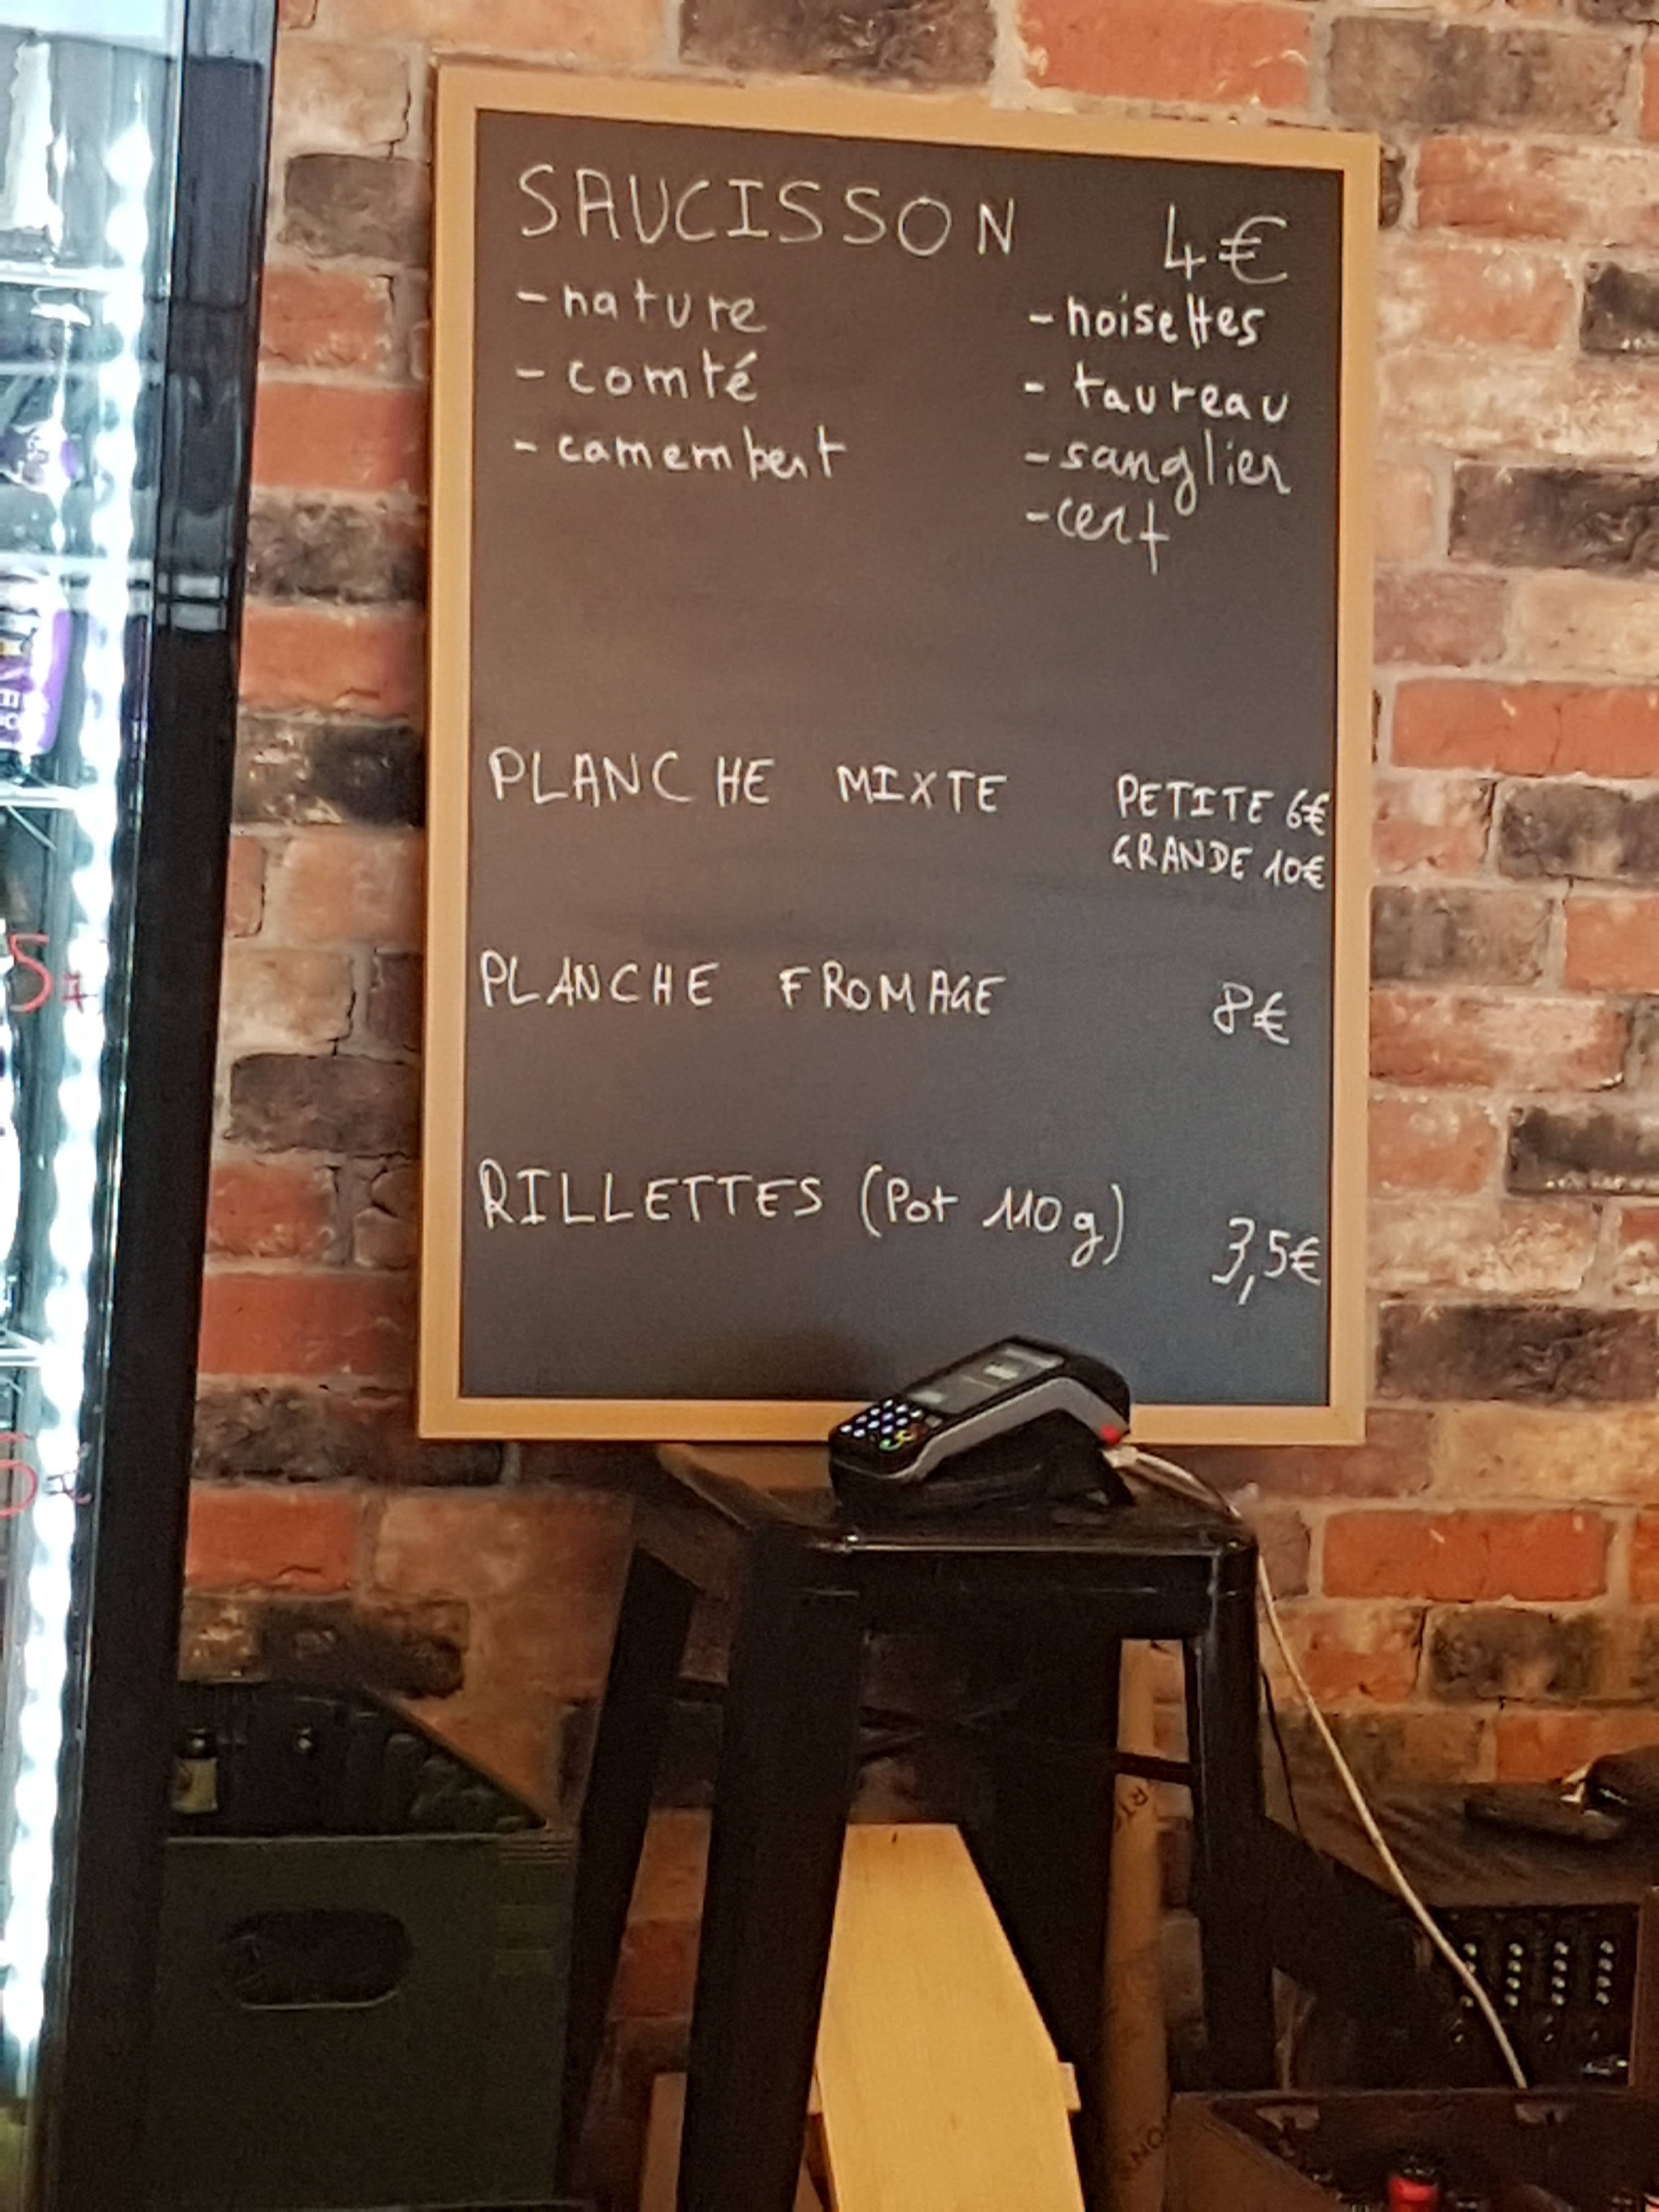 SAUCISSON 4€
- nature - noisettes
- comté - taureau
- camembert - sanglier
- cerf
PLANCHE MIXTE PETITE 6€
GRANDE 10€
PLANCHE FROMAGE 8€
RILLETTES (Pot 110g) 3,5€